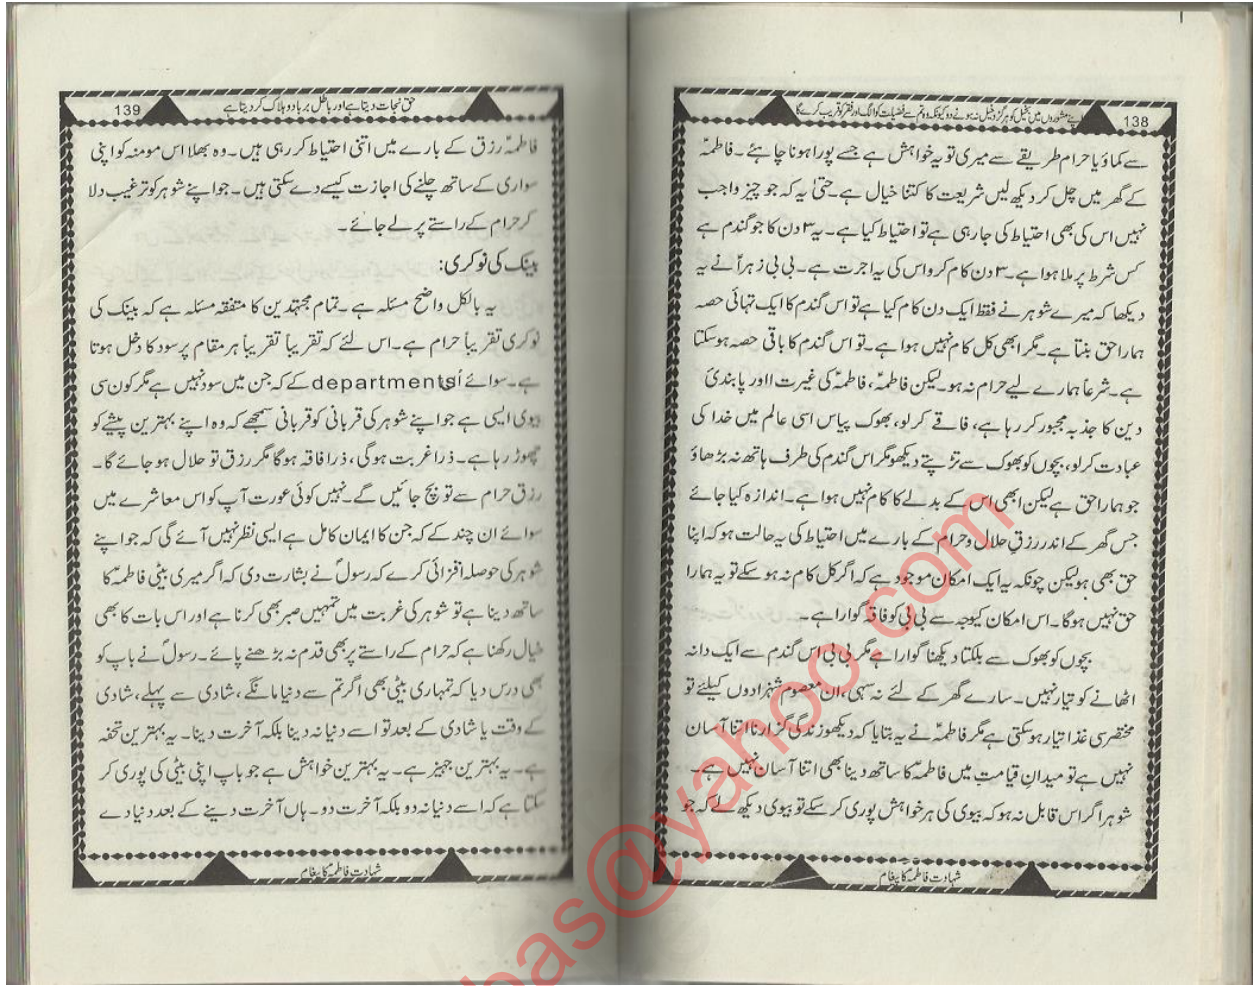 اپنے مشوروں میں بخیل کو ہرگز دخیل نہ ہونے دو کیونکہ وہ تم سے فضیلت کو الگ اور فقر کو قریب کرے گا
138
سے کماؤ یا حرام طریقے سے میری تو یہ خواہش ہے جسے پورا ہونا چاہئے۔ فاطمہؑ
کے گھر میں چل کر دیکھ لیں شریعت کا کتنا خیال ہے۔ حتیٰ یہ کہ جو چیز واجب
نہیں اس کی بھی احتیاط کی جا رہی ہے تو احتیاط کیا ہے۔ یہ ۳ دن کا جو گندم ہے
کس شرط پر ملا ہوا ہے۔ ۳ دن کام کرو اس کی یہ اجرت ہے۔ بی بی زہراؑ نے یہ
دیکھا کہ میرے شوہر نے فقط ایک دن کام کیا ہے تو اس گندم کا ایک تہائی حصہ
ہمارا حق بنتا ہے۔ مگر ابھی کل کام نہیں ہوا ہے۔ تو اس گندم کا باقی حصہ ہو سکتا
ہے۔ شرعاً ہمارے لیے حرام نہ ہو۔ لیکن فاطمہؑ، فاطمہؑ کی غیرت اور پابندیٔ
دین کا جذبہ مجبور کر رہا ہے، فاقے کرلو، بھوک پیاس اسی عالم میں خدا کی
عبادت کرلو، بچوں کو بھوک سے تڑپتے دیکھو مگر اس گندم کی طرف ہاتھ نہ بڑھاؤ
جو ہمارا حق ہے لیکن ابھی اس کے بدلے کا کام نہیں ہوا ہے۔ اندازہ کیا جائے
جس گھر کے اندر رزقِ حلال و حرام کے بارے میں احتیاط کی یہ حالت ہو کہ اپنا
حق بھی ہو لیکن چونکہ یہ ایک امکان موجود ہے کہ اگر کل کام نہ ہو سکے تو یہ ہمارا
حق نہیں ہوگا۔ اس امکان کیوجہ سے بی بی کو فاقہ گوارا ہے۔
بچوں کو بھوک سے بلکتا دیکھنا گوارا ہے مگر بی بی اس گندم سے ایک دانہ
اٹھانے کو تیار نہیں۔ سارے گھر کے لئے نہ سہی، ان معصوم شہزادوں کیلئے تو
مختصر سی غذا تیار ہو سکتی ہے مگر فاطمہؑ نے یہ بتایا کہ دیکھو زندگی گزارنا اتنا آسان
نہیں ہے تو میدانِ قیامت میں فاطمہؑ کا ساتھ دینا بھی اتنا آسان نہیں ہے۔
شوہر اگر اس قابل نہ ہو کہ بیوی کی ہر خواہش پوری کر سکے تو بیوی دیکھ لے کہ جو
شہادت فاطمہؑ کا پیغام
حق نجات دیتا ہے اور باطل برباد و ہلاک کر دیتا ہے
139
فاطمہؑ رزق کے بارے میں اتنی احتیاط کر رہی ہیں۔ وہ بھلا اس مومنہ کو اپنی
سواری کے ساتھ چلنے کی اجازت کیسے دے سکتی ہیں۔ جو اپنے شوہر کو ترغیب دلا
کر حرام کے راستے پر لے جائے۔
بینک کی نوکری:
یہ بالکل واضح مسئلہ ہے۔ تمام مجتہدین کا متفقہ مسئلہ ہے کہ بینک کی
نوکری تقریباً حرام ہے۔ اس لئے کہ تقریباً تقریباً ہر مقام پر سود کا دخل ہوتا
ہے۔ سوائے اُن departments کے کہ جن میں سود نہیں ہے مگر کون سی
بیوی ایسی ہے جو اپنے شوہر کی قربانی کو قربانی سمجھے کہ وہ اپنے بہترین پیشے کو
چھوڑ رہا ہے۔ ذرا غربت ہوگی، ذرا فاقہ ہوگا مگر رزق تو حلال ہو جائے گا۔
رزق حرام سے تو بچ جائیں گے۔ نہیں کوئی عورت آپ کو اس معاشرے میں
سوائے ان چند کے کہ جن کا ایمان کامل ہے ایسی نظر نہیں آئے گی کہ جو اپنے
شوہر کی حوصلہ افزائی کرے کہ رسولؐ نے بشارت دی کہ اگر میری بیٹی فاطمہؑ کا
ساتھ دینا ہے تو شوہر کی غربت میں تمہیں صبر بھی کرنا ہے اور اس بات کا بھی
خیال رکھنا ہے کہ حرام کے راستے پر بھی قدم نہ بڑھنے پائے۔ رسولؐ نے باپ کو
بھی درس دیا کہ تمہاری بیٹی بھی اگر تم سے دنیا مانگے، شادی سے پہلے، شادی
کے وقت یا شادی کے بعد تو اسے دنیا نہ دینا بلکہ آخرت دینا۔ یہ بہترین تحفہ
ہے۔ یہ بہترین جہیز ہے۔ یہ بہترین خواہش ہے جو باپ اپنی بیٹی کی پوری کر
سکتا ہے کہ اسے دنیا نہ دو بلکہ آخرت دو۔ ہاں آخرت دینے کے بعد دنیا دے
شہادت فاطمہؑ کا پیغام
bas@yahoo.com